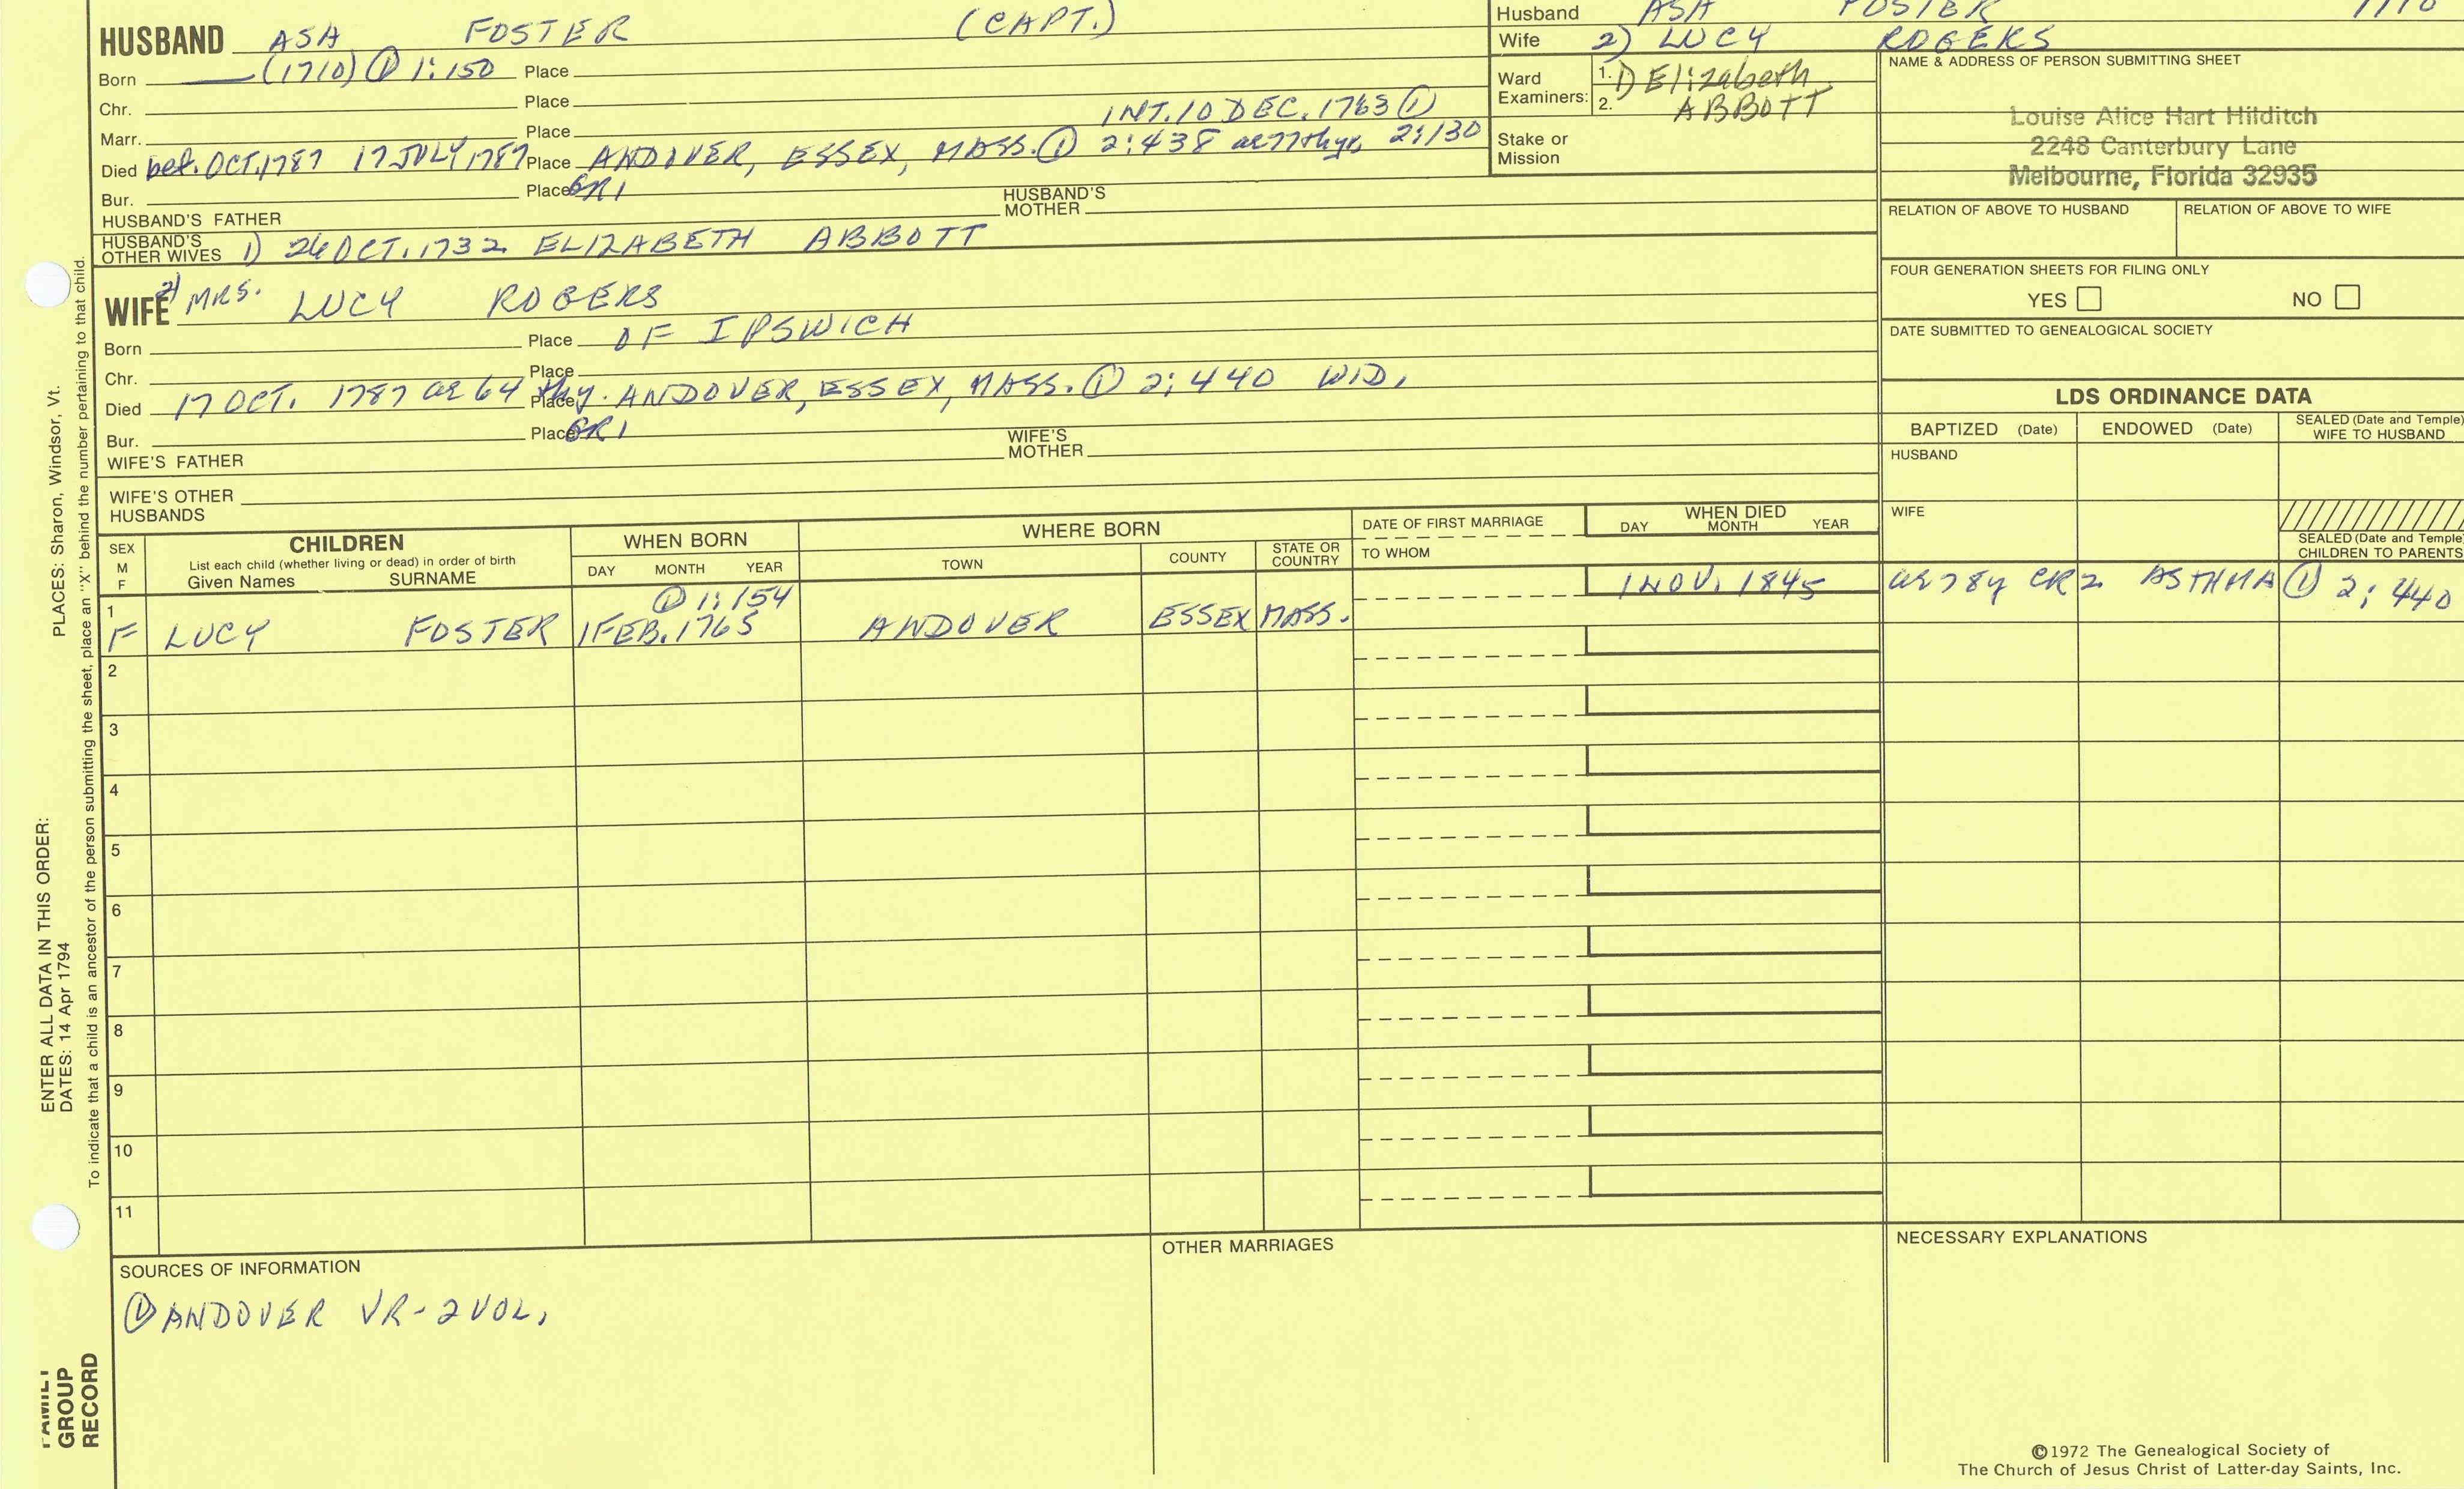 HUSBAND ASA FOSTER (CAPT.)
Born (1710) ① 1:150 Place
Chr. Place
Marr. Place INT. 10 DEC. 1763 ①
Died bef. OCT. 1787 17 JULY, 1787 Place ANDOVER, ESSEX, MASS. ① 2:438 ae 77thy. 2:130
Bur. Place GR1
HUSBAND'S FATHER HUSBAND'S MOTHER
HUSBAND'S OTHER WIVES 1) 26 OCT. 1732 ELIZABETH ABBOTT
WIFE 2) MRS. LUCY ROGERS
Born Place OF IPSWICH
Chr. Place
Died 17 OCT. 1787 ae 64 thy. Place ANDOVER, ESSEX, MASS. ① 2:440 WID.
Bur. Place GR1
WIFE'S FATHER WIFE'S MOTHER
WIFE'S OTHER HUSBANDS
Husband ASA FOSTER 1710
Wife 2) LUCY ROGERS
Ward Examiners: 1. 1) Elizabeth
2. ABBOTT
Stake or Mission
NAME & ADDRESS OF PERSON SUBMITTING SHEET
Louise Alice Hart Hilditch
2248 Canterbury Lane
Melbourne, Florida 32935
RELATION OF ABOVE TO HUSBAND RELATION OF ABOVE TO WIFE
FOUR GENERATION SHEETS FOR FILING ONLY
YES NO
DATE SUBMITTED TO GENEALOGICAL SOCIETY
LDS ORDINANCE DATA
BAPTIZED (Date) ENDOWED (Date) SEALED (Date and Temple) WIFE TO HUSBAND
HUSBAND
WIFE
SEALED (Date and Temple) CHILDREN TO PARENTS
SEX M F
CHILDREN
List each child (whether living or dead) in order of birth
Given Names SURNAME
WHEN BORN
DAY MONTH YEAR
WHERE BORN
TOWN COUNTY STATE OR COUNTRY
DATE OF FIRST MARRIAGE
TO WHOM
WHEN DIED
DAY MONTH YEAR
1 ① 1:154 1 NOV. 1845 ae 78y CR2 ASTHMA ① 2:440
F LUCY FOSTER 1 FEB. 1765 ANDOVER ESSEX MASS.
2
3
4
5
6
7
8
9
10
11
SOURCES OF INFORMATION
① ANDOVER VR-2 VOL.
OTHER MARRIAGES
NECESSARY EXPLANATIONS
©1972 The Genealogical Society of
The Church of Jesus Christ of Latter-day Saints, Inc.
ENTER ALL DATA IN THIS ORDER:
DATES: 14 Apr 1794
PLACES: Sharon, Windsor, Vt.
To indicate that a child is an ancestor of the person submitting the sheet, place an "X" behind the number pertaining to that child.
FAMILY
GROUP
RECORD